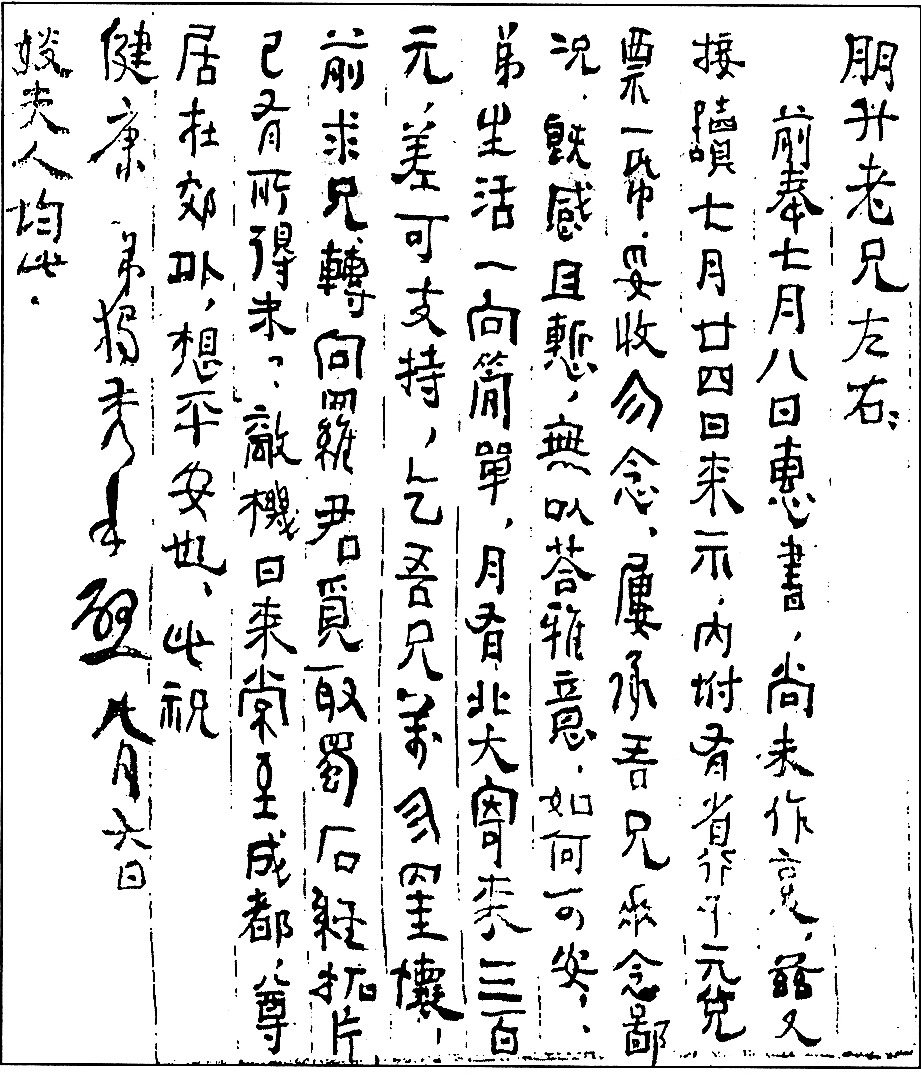 朋升老兄左右：
前奉七月八日惠書，尚未作哀，茲又
接讀七月廿四日來示，内坿有省行千元兌
票一帋，妥收勿念，屢承吾兄垂念鄙
況，既感且慙，無以荅雅意，如何可安，
弟生活一向簡單，月有北大寄來三百
元，差可支持，乞吾兄萬勿罣懷，
前求兄轉向羅君覓取蜀石經拓片
已有所得未？敵機日來常至成都，尊
居在郊外，想平安也，此祝
健康 弟獨秀手啓 九月六日
嫂夫人均此．